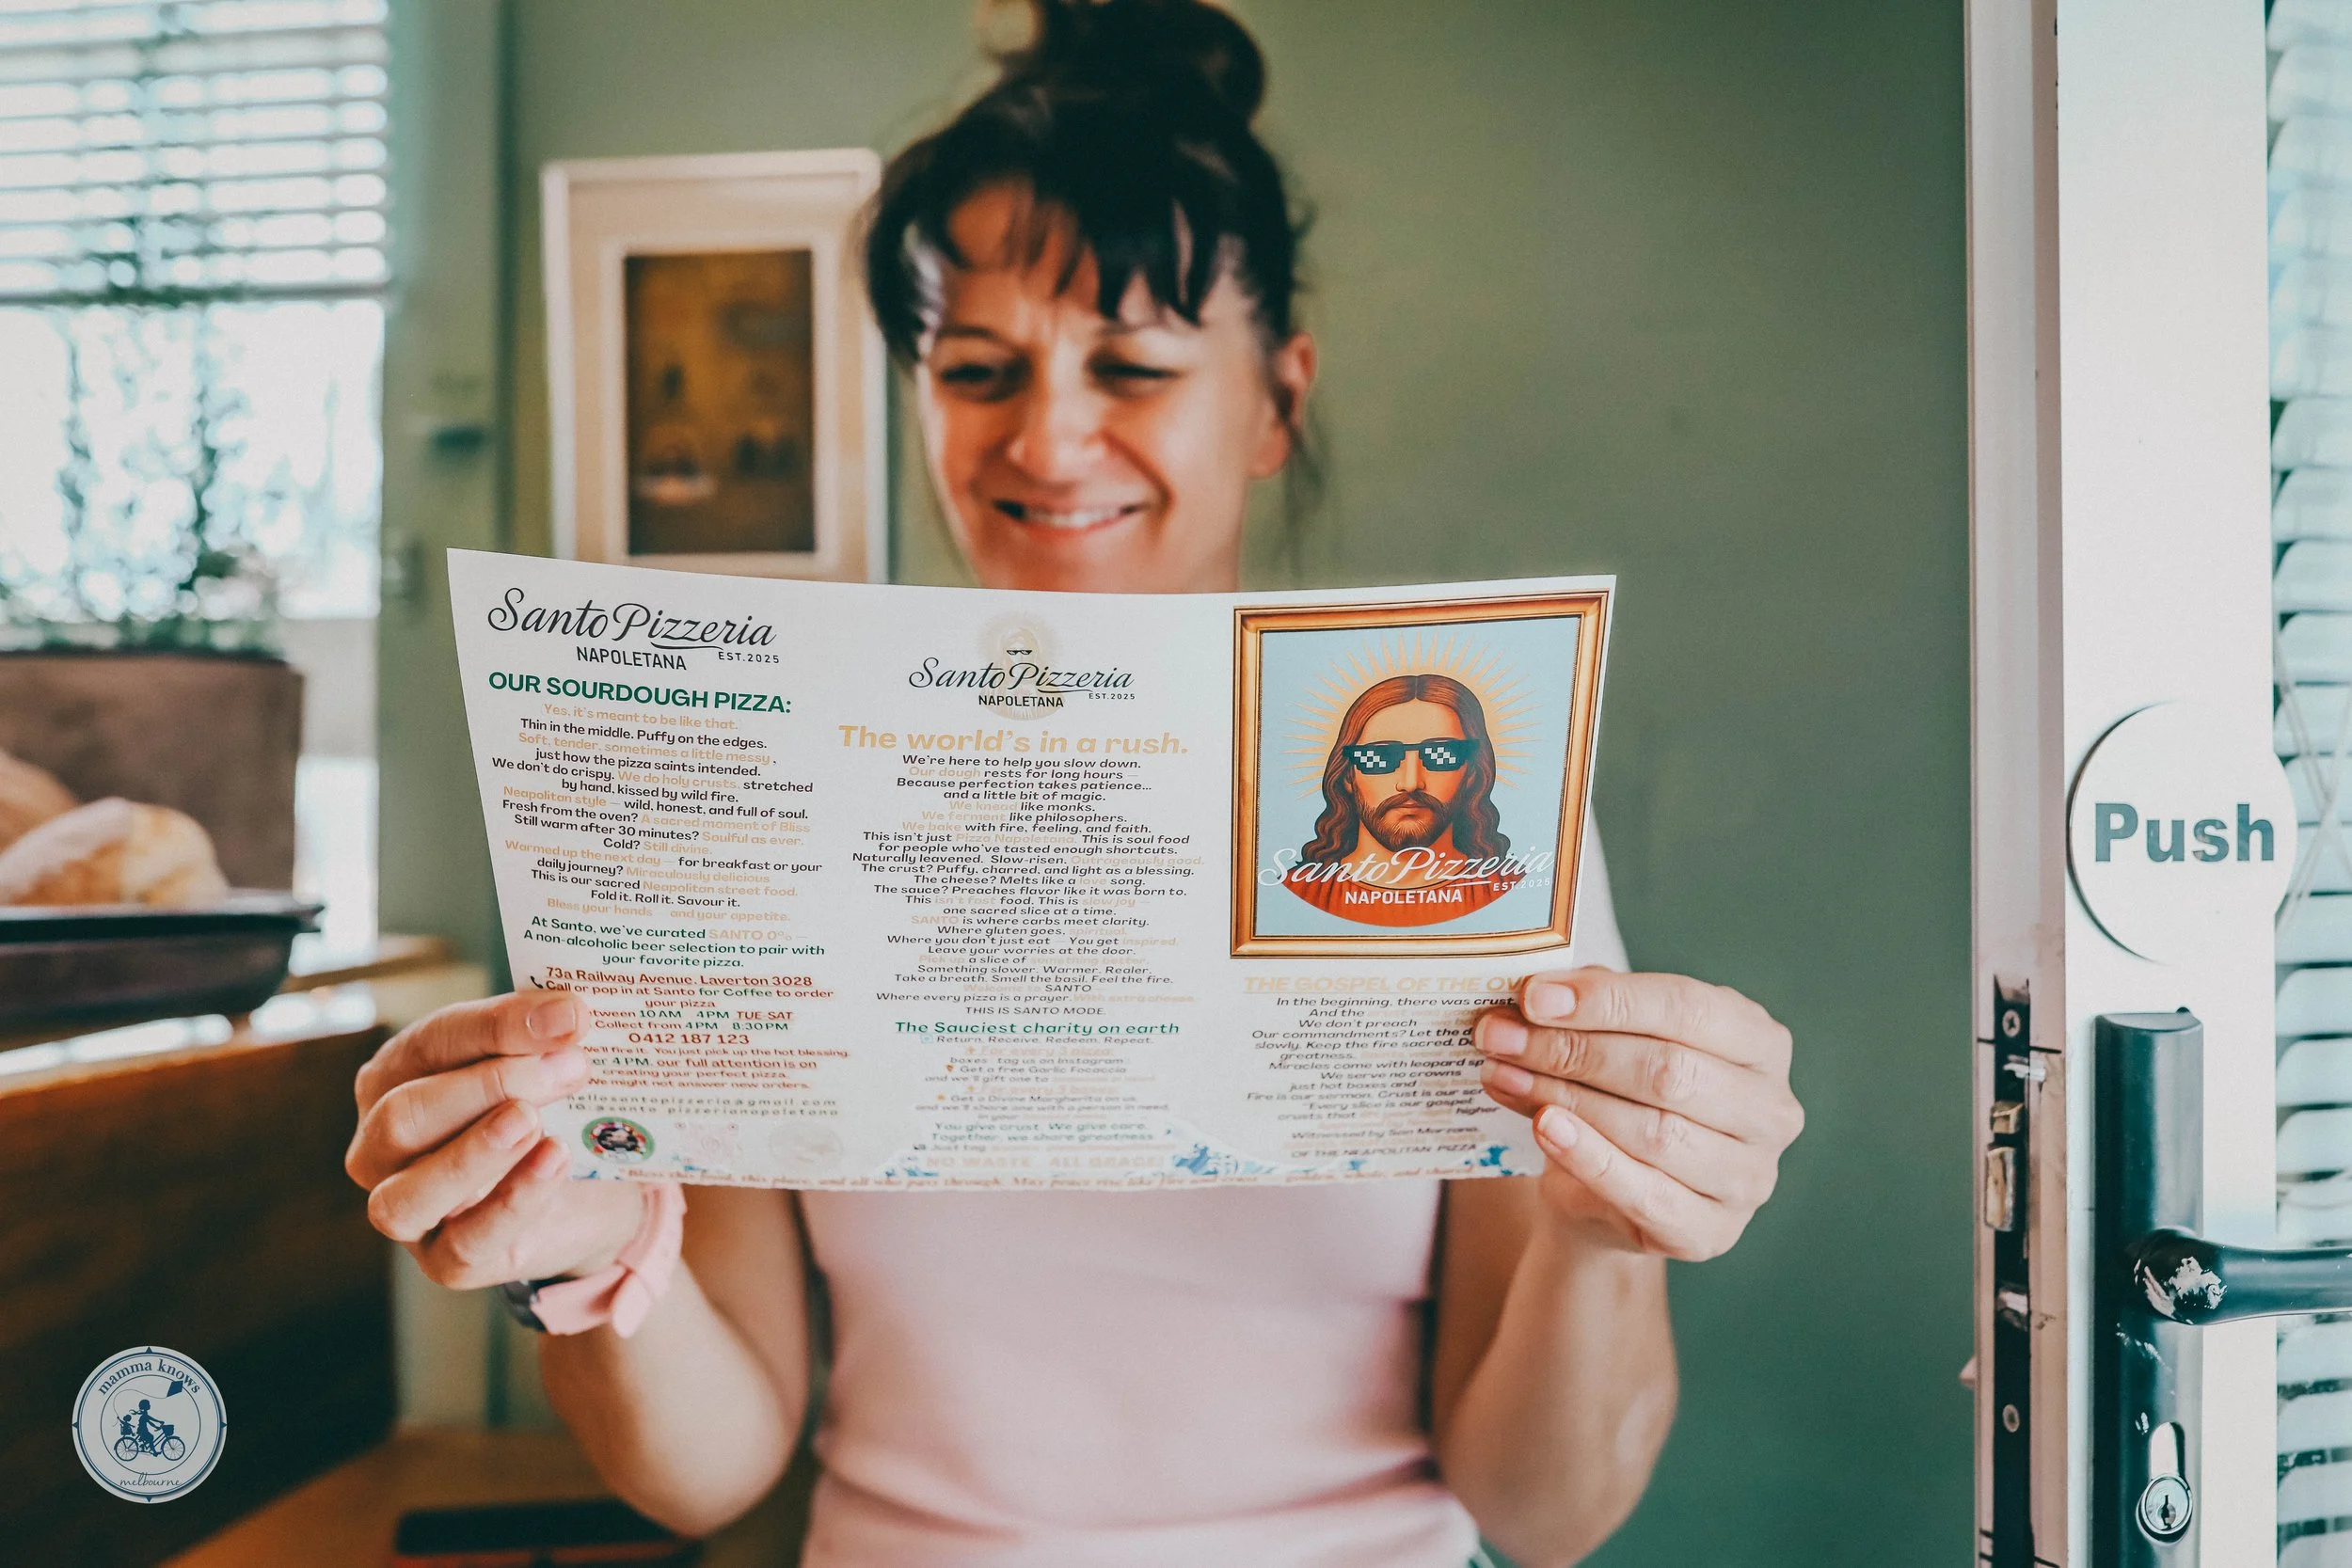 Santo Pizzeria
NAPOLETANA EST.2025
OUR SOURDOUGH PIZZA:
Yes, it's meant to be like that.
Thin in the middle. Puffy on the edges.
Soft, tender, sometimes a little messy,
just how the pizza saints intended.
We don't do crispy. We do holy crusts, stretched
by hand, kissed by wild fire.
Neapolitan style — wild, honest, and full of soul.
Fresh from the oven? A sacred moment of Bliss
Still warm after 30 minutes? Soulful as ever.
Cold? Still divine.
Warmed up the next day — for breakfast or your
daily journey? Miraculously delicious
This is our sacred Neapolitan street food.
Fold it. Roll it. Savour it.
Bless your hands and your appetite.
At Santo, we've curated SANTO 0% —
A non-alcoholic beer selection to pair with
your favorite pizza.
73a Railway Avenue, Laverton 3028
Call or pop in at Santo for Coffee to order
your pizza
10 AM 4PM TUE-SAT
Collect from 4PM 8:30PM
0412 187 123
We'll fire it. You just pick up the hot blessing.
4 PM, our full attention is on
creating your perfect pizza.
We might not answer new orders.
hellosantopizzeria@gmail.com
IG: @santo_pizzerianapoletana
Santo Pizzeria
NAPOLETANA EST.2025
The world's in a rush.
We're here to help you slow down.
Our dough rests for long hours —
Because perfection takes patience...
and a little bit of magic.
We knead like monks.
We ferment like philosophers.
We bake with fire, feeling, and faith.
This isn't just Pizza Napoletana. This is soul food
for people who've tasted enough shortcuts.
Naturally leavened. Slow-risen. Outrageously good.
The crust? Puffy, charred, and light as a blessing.
The cheese? Melts like a love song.
The sauce? Preaches flavor like it was born to.
This isn't fast food. This is slow joy —
one sacred slice at a time.
SANTO is where carbs meet clarity.
Where gluten goes, spiritual.
Where you don't just eat — You get inspired.
Leave your worries at the door.
Pick up a slice of something better.
Something slower. Warmer. Realer.
Take a breath. Smell the basil. Feel the fire.
Welcome to SANTO
Where every pizza is a prayer. With extra cheese.
THIS IS SANTO MODE.
The Sauciest charity on earth
Return. Receive. Redeem. Repeat.
For every 3 pizza
boxes tag us on Instagram.
Get a free Garlic Focaccia
and we'll gift one to
Get a Divine Margherita on us
and we'll share one with a person in need,
You give crust. We give care.
Together, we share greatness
NO WASTE ALL GRACE!
Santo Pizzeria
NAPOLETANA EST.2025
THE GOSPEL OF THE
In the beginning, there was crust
And the
We don't preach
Our commandments? Let the
slowly. Keep the fire sacred.
greatness.
Miracles come with leopard
We serve no crowns
just hot boxes and
Fire is our sermon. Crust is our
Every slice is our gospel
crusts that higher
Witnessed by San Marzano.
OF THE NEAPOLITAN PIZZA
Bless this food, this place, and all who pass through. May peace rise like fire and crust golden, whole, and shared
Push
mamma knows
melbourne